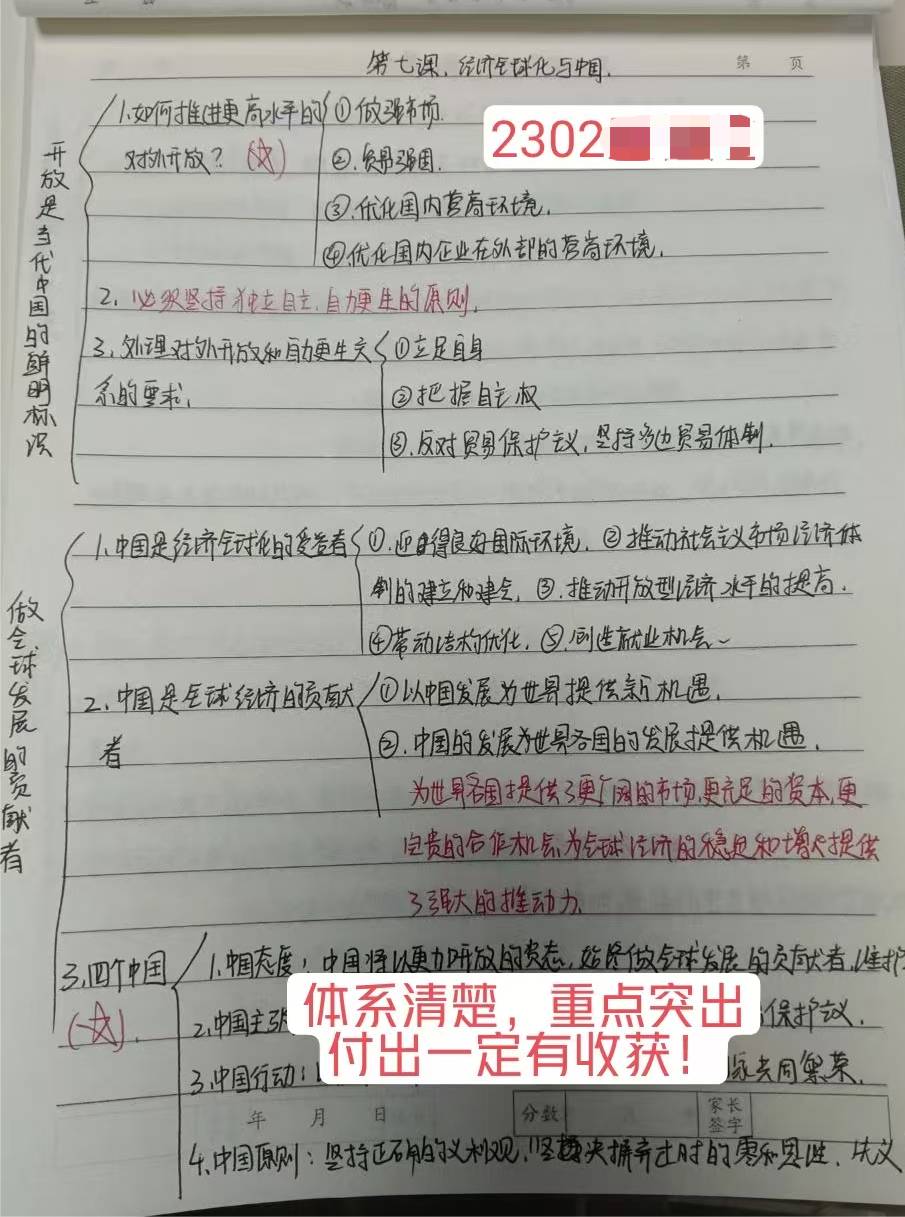 第七课、经济全球化与中国.
第 页
2302
开放是当代中国的鲜明标识
1.如何推进更高水平的
对外开放？(文)
①做强市场.
②.贸易强国.
③.优化国内营商环境.
④优化国内企业在外部的营商环境.
2.必须坚持独立自主、自力更生的原则.
3.处理对外开放和自力更生关
系的要求.
①立足自身
②把握自主权
③.反对贸易保护主义，坚持多边贸易体制.
做全球发展的贡献者
1.中国是经济全球化的受益者
①.迎得良好国际环境.②推动社会主义市场经济体
制的建立和建会.③.推动开放型经济水平的提高.
④带动结构优化.⑤.创造就业机会~
2.中国是全球经济的贡献
者
①以中国发展为世界提供新机遇.
②.中国的发展为世界各国的发展提供机遇.
为世界各国提供了更广阔的市场,更充足的资本,更
宝贵的合作机会,为全球经济的稳定和增长提供
了强大的推动力.
3.四个中国
(文).
1.中国态度：中国将以更加开放的姿态,始终做全球发展的贡献者,维护
2.中国主张
保护主义.
3.中国行动：
共同繁荣.
体系清楚，重点突出
付出一定有收获！
年 月 日
分数
家长
签字
4.中国原则：坚持正确的义利观，坚决摒弃过时的零和思维.